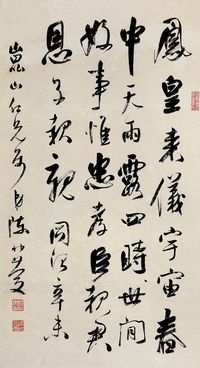 鳳皇来儀宇宙春
中天雨露四時世間
好事惟忠孝臣報君
恩子報親 同治辛未
崑山仁兄 陳